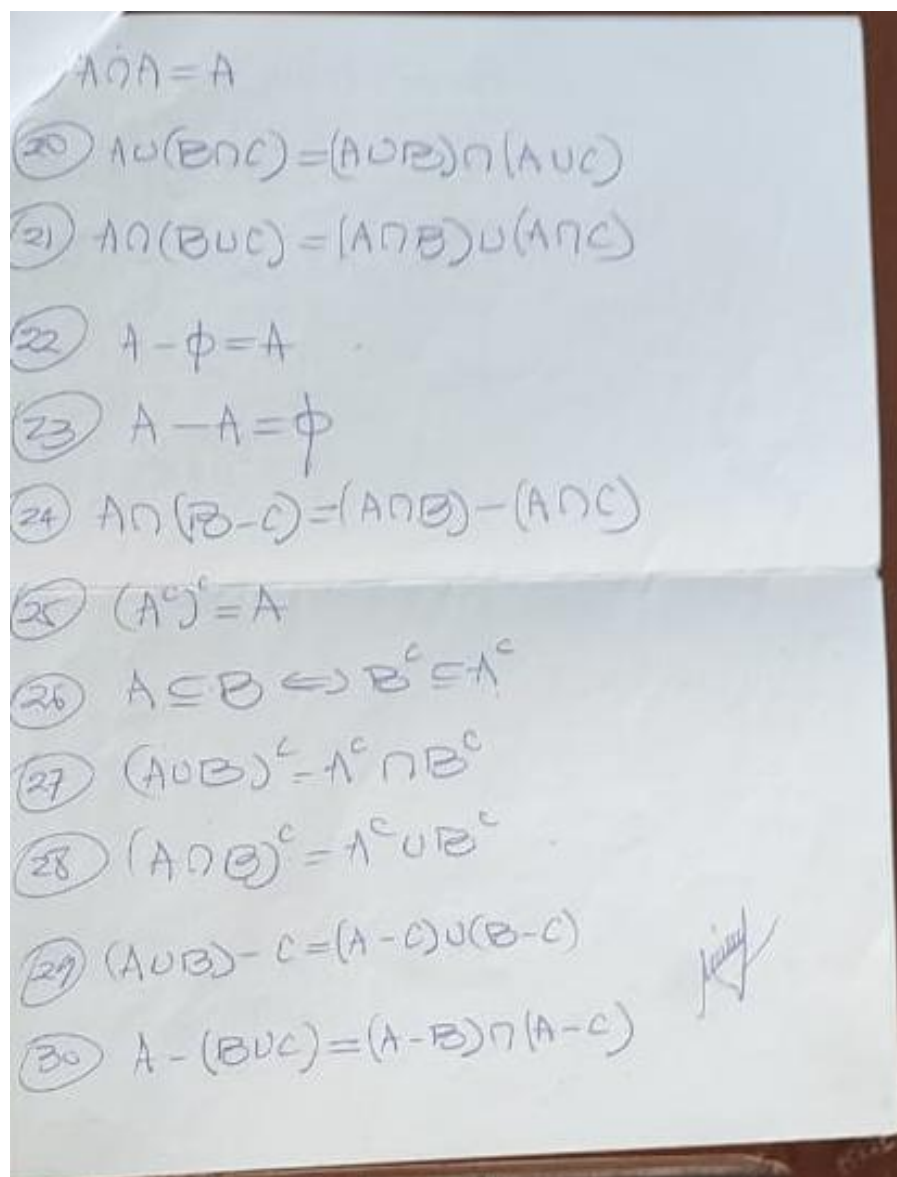 A∩A=A
20 A∪(B∩C)=(A∪B)∩(A∪C)
21 A∩(B∪C)=(A∩B)∪(A∩C)
22 A-ϕ=A
23 A-A=ϕ
24 A∩(B-C)=(A∩B)-(A∩C)
25 (Aᶜ)ᶜ=A
26 A⊆B⇔Bᶜ⊆Aᶜ
27 (A∪B)ᶜ=Aᶜ∩Bᶜ
28 (A∩B)ᶜ=Aᶜ∪Bᶜ
29 (A∪B)-C=(A-C)∪(B-C)
30 A-(B∪C)=(A-B)∩(A-C)